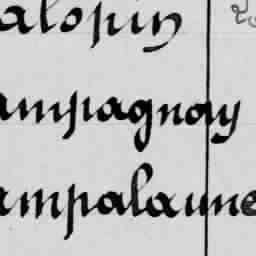 alopin
ampagnay
ampalaune